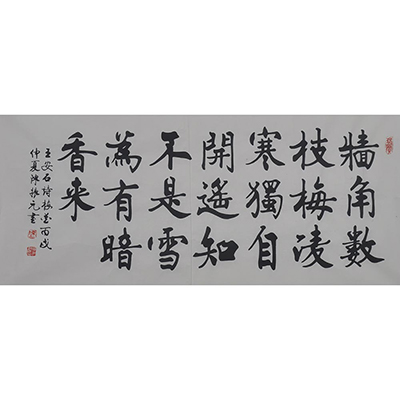 牆角數
枝梅凌
寒獨自
開遥知
不是雪
為有暗
香来
王安石詩梅花丙戌
仲夏陳振元書